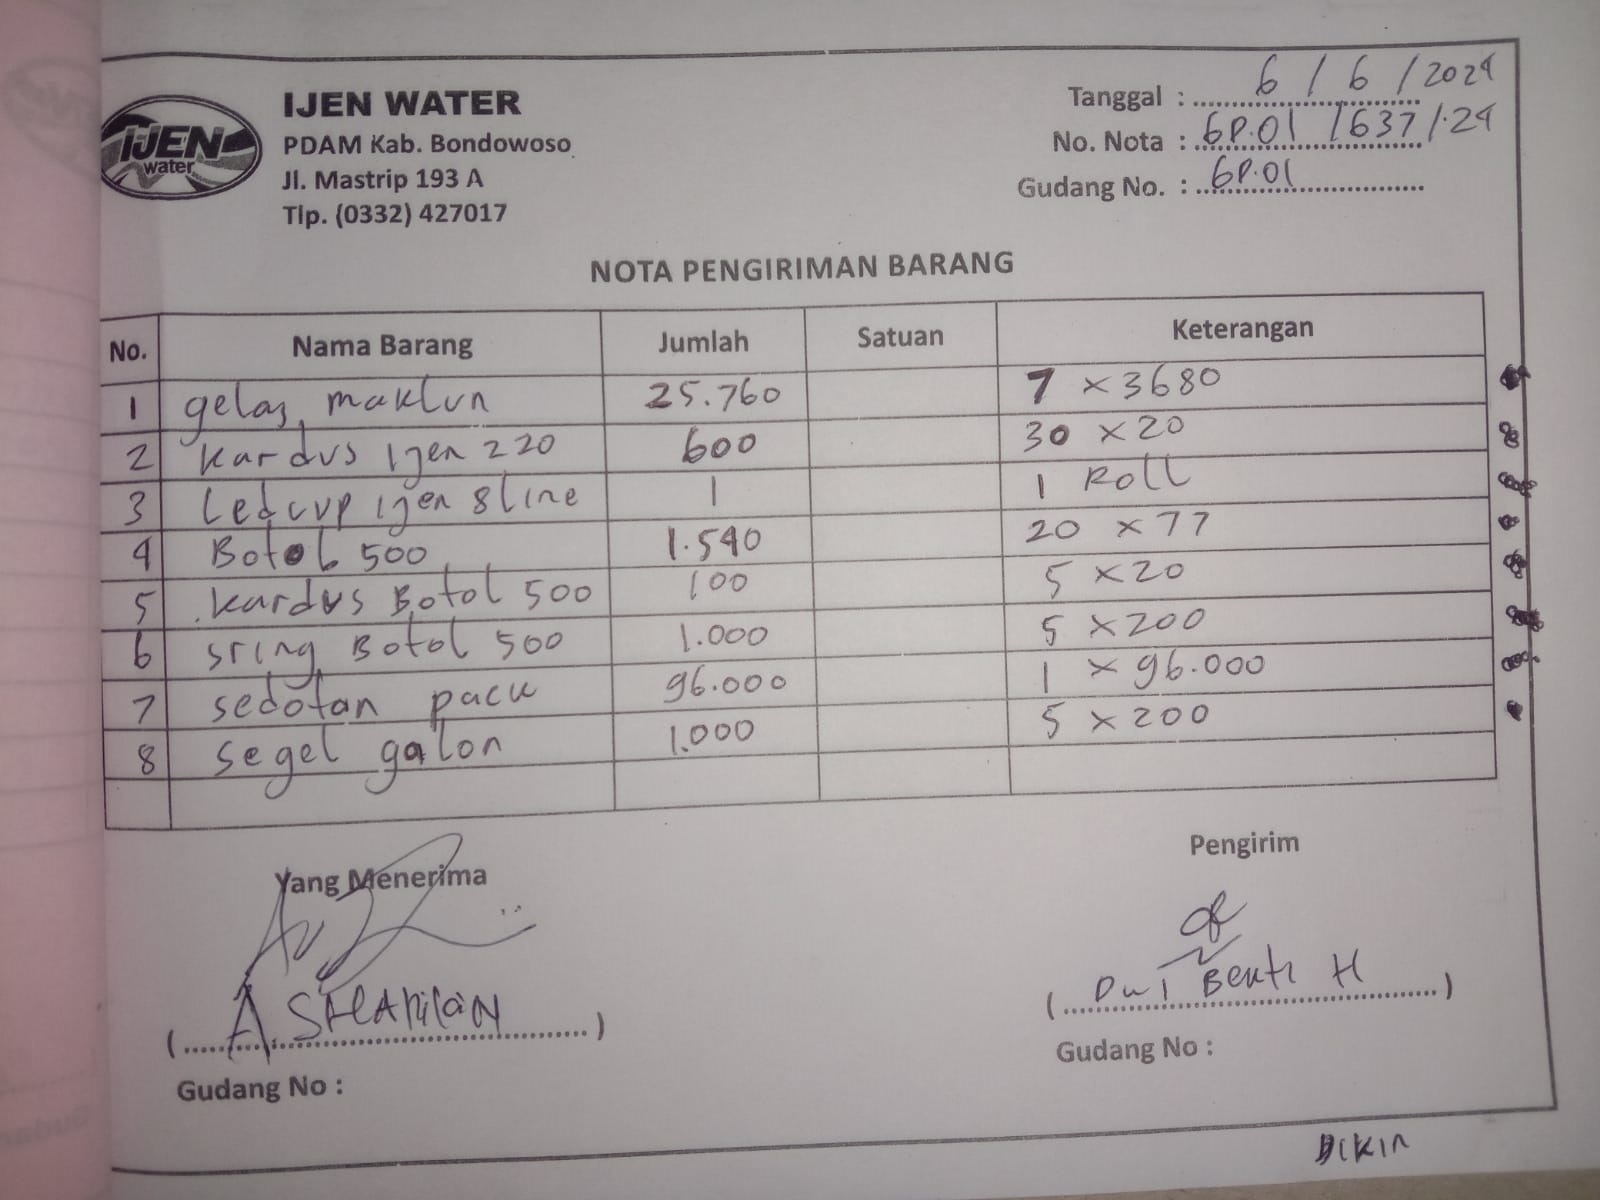 IJEN WATER
PDAM Kab. Bondowoso
Jl. Mastrip 193 A
Tlp. (0332) 427017
IJEN
water
Tanggal : 6 / 6 / 2024
No. Nota : GP.01 /637/.24
Gudang No. : GP.01
NOTA PENGIRIMAN BARANG
No. Nama Barang Jumlah Satuan Keterangan
1 gelas maklun 25.760 7 x 3680
2 kardus Ijen 220 600 30 x 20
3 Ledcup ijen 8 line 1 1 Roll
4 Botol 500 1.540 20 x 77
5 kardus Botol 500 100 5 x 20
6 sring Botol 500 1.000 5 x 200
7 sedotan pack 96.000 1 x 96.000
8 segel galon 1.000 5 x 200
Yang Menerima Pengirim
(A.) (Dwi H)
Gudang No : Gudang No :